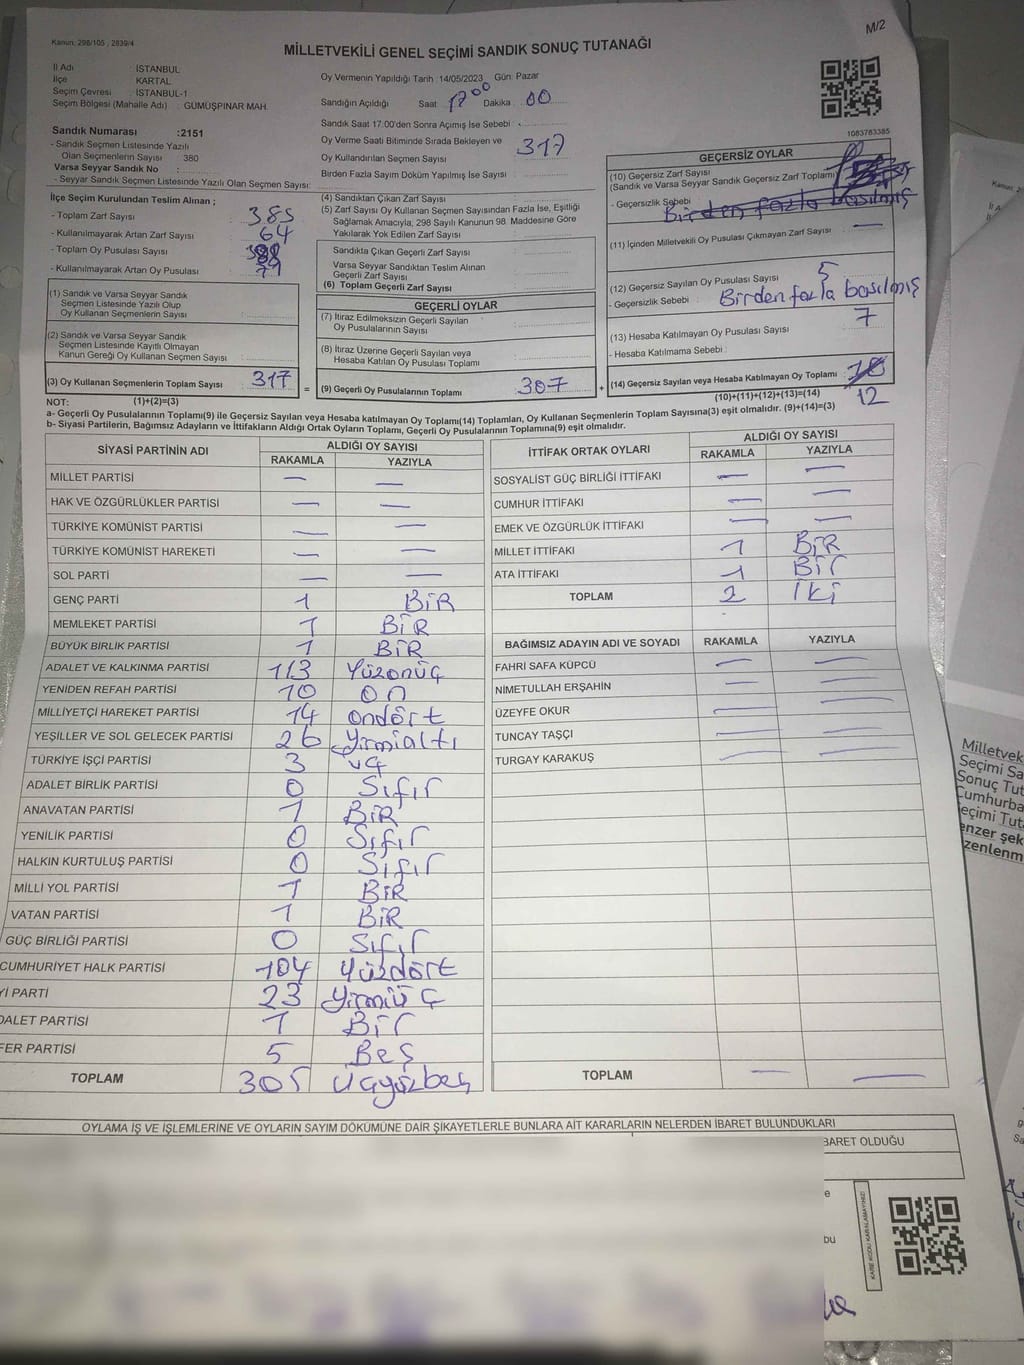 M/2
Kanun: 298/105 , 2839/4
MİLLETVEKİLİ GENEL SEÇİMİ SANDIK SONUÇ TUTANAĞI
İl Adı : İSTANBUL
İlçe : KARTAL
Seçim Çevresi : İSTANBUL-1
Seçim Bölgesi (Mahalle Adı) : GÜMÜŞPINAR MAH.
Sandık Numarası :2151
- Sandık Seçmen Listesinde Yazılı
Olan Seçmenlerin Sayısı : 380
Varsa Seyyar Sandık No :
- Seyyar Sandık Seçmen Listesinde Yazılı Olan Seçmen Sayısı:
Oy Vermenin Yapıldığı Tarih :14/05/2023 Gün: Pazar
Sandığın Açıldığı Saat : 17 00 Dakika : 00
Sandık Saat 17:00'den Sonra Açımış İse Sebebi :
Oy Verme Saati Bitiminde Sırada Bekleyen ve
Oy Kullandırılan Seçmen Sayısı : 317
Birden Fazla Sayım Döküm Yapılmış İse Sayısı :
1083783385
İlçe Seçim Kurulundan Teslim Alınan ;
- Toplam Zarf Sayısı : 385
- Kullanılmayarak Artan Zarf Sayısı : 64
- Toplam Oy Pusulası Sayısı :
- Kullanılmayarak Artan Oy Pusulası : 71
(1) Sandık ve Varsa Seyyar Sandık
Seçmen Listesinde Yazılı Olup
Oy Kullanan Seçmenlerin Sayısı :
(2) Sandık ve Varsa Seyyar Sandık
Seçmen Listesinde Kayıtlı Olmayan
Kanun Gereği Oy Kullanan Seçmen Sayısı :
(3) Oy Kullanan Seçmenlerin Toplam Sayısı : 317
(1)+(2)=(3)
(4) Sandıktan Çıkan Zarf Sayısı :
(5) Zarf Sayısı Oy Kullanan Seçmen Sayısından Fazla İse, Eşitliği
Sağlamak Amacıyla, 298 Sayılı Kanunun 98. Maddesine Göre
Yakılarak Yok Edilen Zarf Sayısı :
Sandıkta Çıkan Geçerli Zarf Sayısı :
Varsa Seyyar Sandıktan Teslim Alınan
Geçerli Zarf Sayısı :
(6) Toplam Geçerli Zarf Sayısı :
GEÇERLİ OYLAR
(7) İtiraz Edilmeksizin Geçerli Sayılan
Oy Pusulalarının Sayısı :
(8) İtiraz Üzerine Geçerli Sayılan veya
Hesaba Katılan Oy Pusulası Toplamı :
= (9) Geçerli Oy Pusulalarının Toplamı : 307 +
GEÇERSİZ OYLAR
(10) Geçersiz Zarf Sayısı
(Sandık ve Varsa Seyyar Sandık Geçersiz Zarf Toplamı) :
- Geçersizlik Sebebi : Birden fazla basılmış
(11) İçinden Milletvekili Oy Pusulası Çıkmayan Zarf Sayısı : —
(12) Geçersiz Sayılan Oy Pusulası Sayısı : 5
- Geçersizlik Sebebi : Birden fazla basılmış
(13) Hesaba Katılmayan Oy Pusulası Sayısı : 7
- Hesaba Katılmama Sebebi :
(14) Geçersiz Sayılan veya Hesaba Katılmayan Oy Toplamı : 10
(10)+(11)+(12)+(13)=(14) 12
NOT:
a- Geçerli Oy Pusulalarının Toplamı(9) ile Geçersiz Sayılan veya Hesaba katılmayan Oy Toplamı(14) Toplamları, Oy Kullanan Seçmenlerin Toplam Sayısına(3) eşit olmalıdır. (9)+(14)=(3)
b- Siyasi Partilerin, Bağımsız Adayların ve İttifakların Aldığı Ortak Oyların Toplamı, Geçerli Oy Pusulalarının Toplamına(9) eşit olmalıdır.
SİYASİ PARTİNİN ADI ALDIĞI OY SAYISI
RAKAMLA YAZIYLA
MİLLET PARTİSİ — —
HAK VE ÖZGÜRLÜKLER PARTİSİ — —
TÜRKİYE KOMÜNİST PARTİSİ — —
TÜRKİYE KOMÜNİST HAREKETİ — —
SOL PARTİ — —
GENÇ PARTİ 1 BİR
MEMLEKET PARTİSİ 1 BİR
BÜYÜK BİRLİK PARTİSİ 1 BİR
ADALET VE KALKINMA PARTİSİ 113 Yüzonüç
YENİDEN REFAH PARTİSİ 10 On
MİLLİYETÇİ HAREKET PARTİSİ 14 ondört
YEŞİLLER VE SOL GELECEK PARTİSİ 26 Yirmialtı
TÜRKİYE İŞÇİ PARTİSİ 3 üç
ADALET BİRLİK PARTİSİ 0 Sıfır
ANAVATAN PARTİSİ 1 BİR
YENİLİK PARTİSİ 0 Sıfır
HALKIN KURTULUŞ PARTİSİ 0 Sıfır
MİLLİ YOL PARTİSİ 1 BİR
VATAN PARTİSİ 1 BİR
GÜÇ BİRLİĞİ PARTİSİ 0 Sıfır
CUMHURİYET HALK PARTİSİ 104 Yüzdört
Yİ PARTİ 23 Yirmiüç
DALET PARTİSİ 1 Bir
FER PARTİSİ 5 Beş
TOPLAM 305 Üçyüzbeş
İTTİFAK ORTAK OYLARI ALDIĞI OY SAYISI
RAKAMLA YAZIYLA
SOSYALİST GÜÇ BİRLİĞİ İTTİFAKI — —
CUMHUR İTTİFAKI — —
EMEK VE ÖZGÜRLÜK İTTİFAKI — —
MİLLET İTTİFAKI 1 BİR
ATA İTTİFAKI 1 Bir
TOPLAM 2 İki
BAĞIMSIZ ADAYIN ADI VE SOYADI RAKAMLA YAZIYLA
FAHRİ SAFA KÜPCÜ — —
NİMETULLAH ERŞAHİN — —
ÜZEYFE OKUR — —
TUNCAY TAŞÇI — —
TURGAY KARAKUŞ — —
TOPLAM — —
OYLAMA İŞ VE İŞLEMLERİNE VE OYLARIN SAYIM DÖKÜMÜNE DAİR ŞİKAYETLERLE BUNLARA AİT KARARLARIN NELERDEN İBARET BULUNDUKLARI
BARET OLDUĞU
KARE KODU KARALAMAYINIZ!
Milletvek
Seçimi Sa
Sonuç Tut
Cumhurba
eçimi Tut
enzer şek
zenlenm